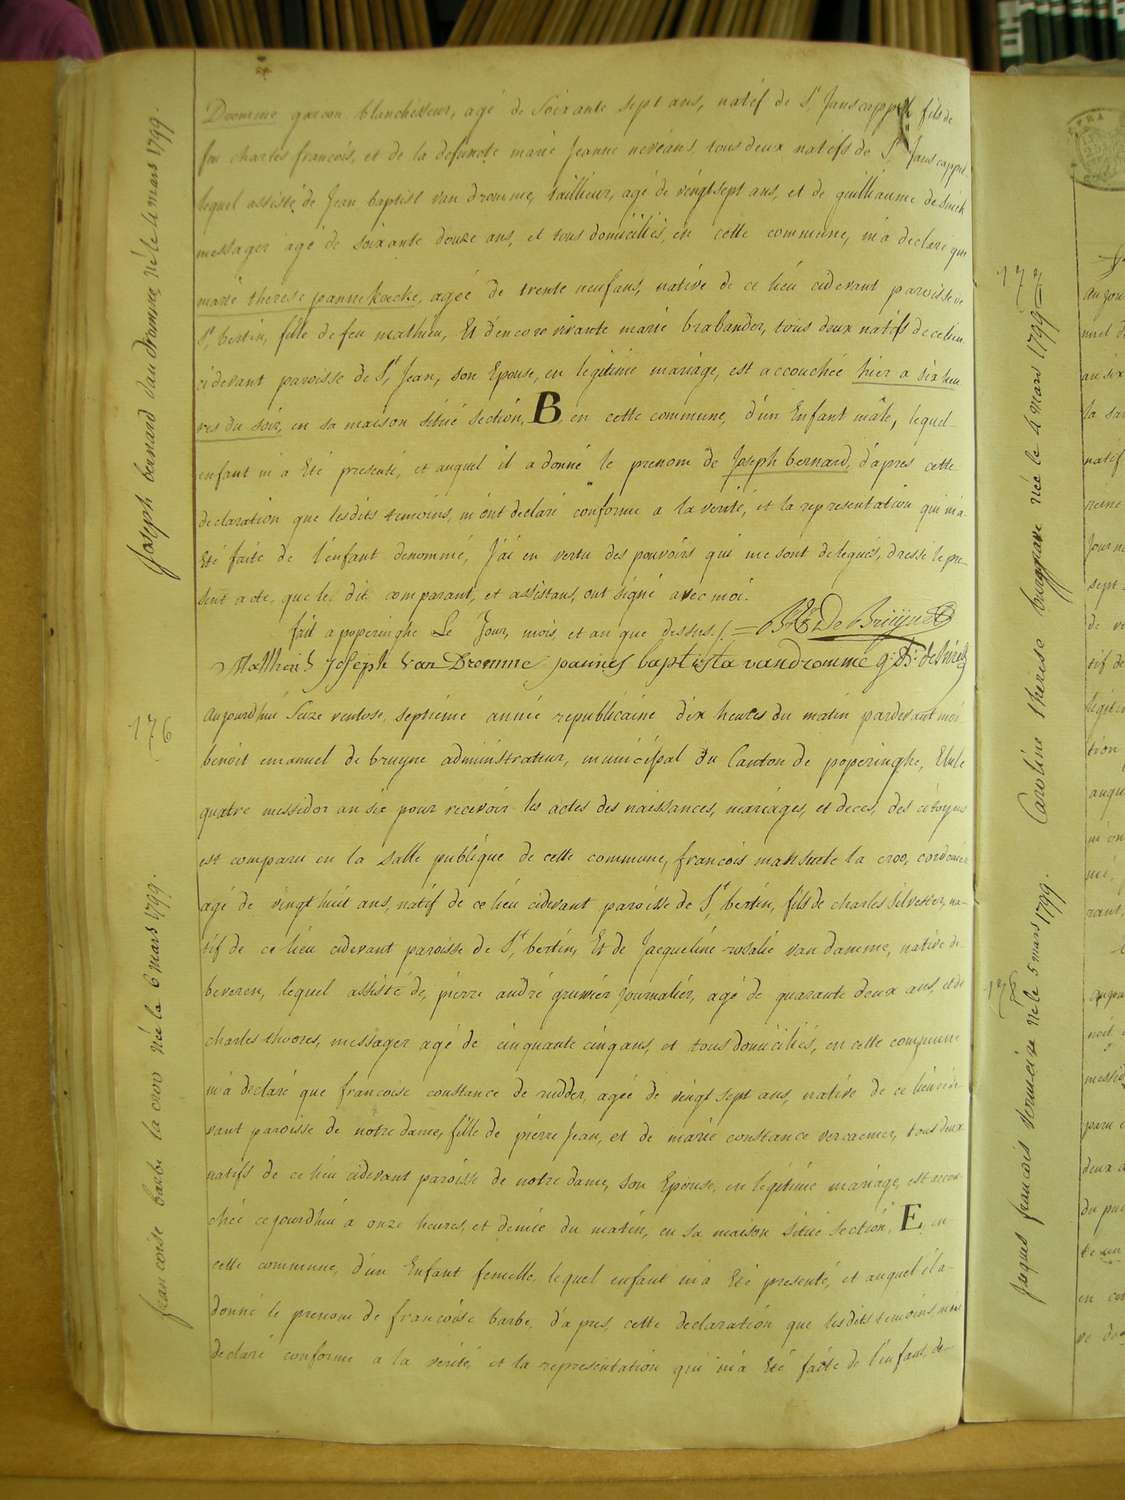 Joseph bernard van dromme né le 4 mars 1799.
Dromme garcon blanchisseur, agé de Soixante sept ans, natif de St Janscappel fils de
feu charles francois, et de la defuncte marie Jeanne nevejans, tous deux natifs de St Janscappel
lequel assisté de Jean baptist van dromme, taillieur, agé de vingt sept ans, et de guilliaume desinck
messager agé de soixante douze ans, et tous domiciliés, en cette commune, m'a declaré que
marie therese jeanne kecke, agée de trente neuf ans, native de ce lieu cidevant paroisse de
St bertin, fille de feu mathieu, Et d'encore vivante marie brabander, tous deux natifs de ce lieu
cidevant paroisse de St Jean, son Epouse, en legitime mariage, est accouchée hier a six heu
res du soir, en sa maison situé section, B, en cette commune, d'un Enfant mâle, lequel
enfant m'a Eté presenté, et auquel il a donné le prenom de Joseph bernard, d'apres cette
declaration que lesdits temoins, m'ont declaré conforme a la verité, et la representation qui m'a
Eté faite de l'enfant denommé, J'ai en vertu des pouvoirs qui me sont delegués, dressé le pre-
sent acte, que le dit comparant, et assistans, ont signé avec moi.
fait a poperinghe Le Jour, mois, et an que dessus. De Bruyne
Mathieu Joseph van Dromme joannes baptista vandromme
176
francoise barbe la croo née le 6 mars 1799.
aujourd'hui Seize ventose, septieme année republicaine dix heures du matin pardevant moi
benoit emanuel de bruyne administrateur, municipal du Canton de poperinghe, Elu le
quatre messidor an six pour recevoir les actes des naissances, mariages, et deces, des citoyens
est comparu en la salle publique de cette commune, francois mansuete la croo, cordonier
agé de vingt huit ans, natif de ce lieu cidevant paroisse de St bertin, fils de charles silvester, na-
tif de ce lieu cidevant paroisse de St bertin, Et de Jacqueline rosalie van damme, native de
beveren, lequel assisté de, pierre andré gruwier journalier, agé de quarante deux ans, et de
charles thoores, messager agé de cinquante cinq ans, et tous domiciliés, en cette commune
m'a declaré que francoise constance de ridder, agée de vingt sept ans, native de ce lieu cide
vant paroisse de notre dame, fille de pierre Jean, et de marie constance vercaemer, tous deux
natifs de ce lieu cidevant paroisse de notre dame, son Epouse, en legitime mariage, est accou
chée cejourd'hui a onze heures, et demie du matin, en sa maison situé section, E, en
cette commune, d'un Enfant femelle, lequel enfant m'a Eté presenté, et auquel il a-
donné le prenom de francoise barbe, d'apres, cette declaration que lesdits temoins m'ont
declaré conforme a la verité, et la representation qui m'a Eté faite de l'enfant de-
177
Caroline therese née le 4 Mars 1799
178
Jaques francois né le 5 mars 1799.